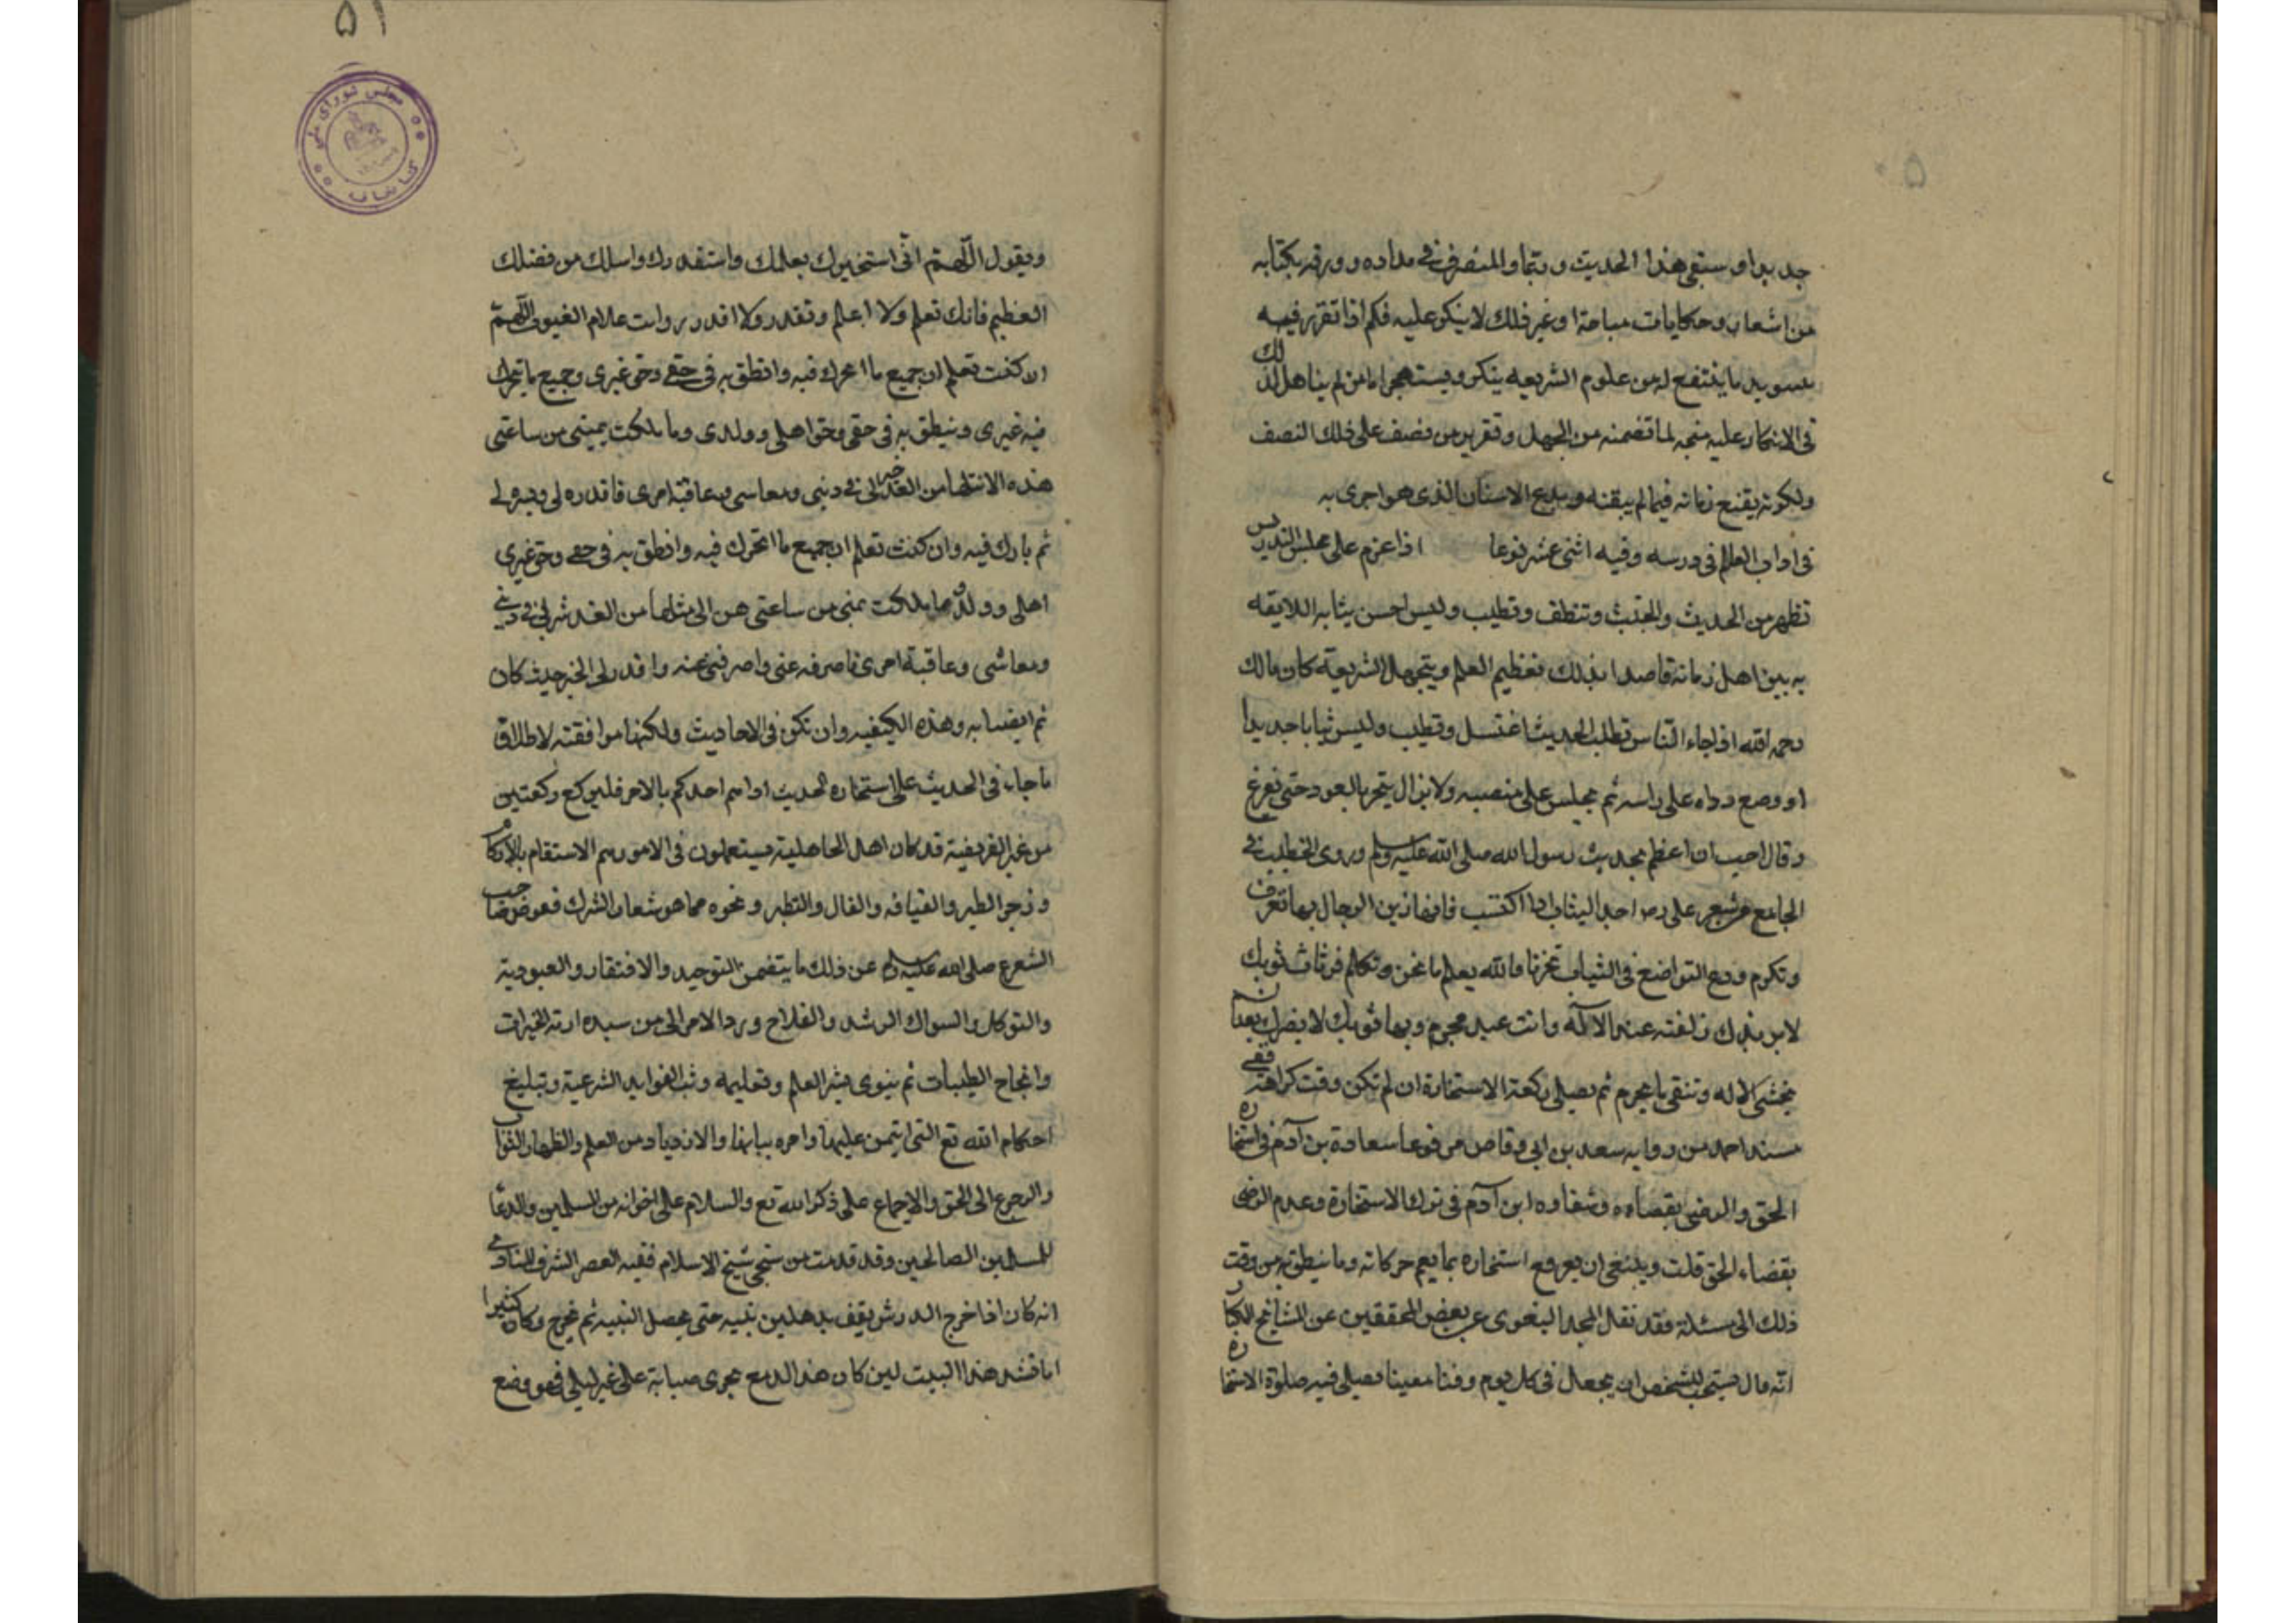 ٥٠
جديدا وستقى هذا الحديث وربما والمنصرف فى مداده وورقه بكتابه
من اشعار وحكايات مباحة او غير ذلك لا ينكر عليه فكم اذا تقرر فيه
بسويد ما ينتفع له من علوم الشريعه ينكر ويستهجر اما من لم يتاهل لذلك
فى الانكار عليه متجه لما تضمنه من الجهل وتقرير من نصف على ذلك النصف
ولكونه يقنع زمانه فيما لم يتقنه ويدع الاسنان الذى هو احرى به
فى اداب العلم فى درسه وفيه اثنى عشر نوعا اذا عزم على مجلس التدريس
تظهر من الحديث والخبث وتنظف وتطيب وليس احسن يثابه اللايقه
به بين اهل زمانه قاصدا بذلك تعظيم العلم ويتجهل الشريعة كان مالك
رحمه الله اذا جاء الناس تطلب الحديث اغتسل وتطيب وليس ثيابا جديدا
او وضع رداه على راسه ثم يجلس على منصبه ولا يزال يتجر بالعود حتى تفرغ
وقال احب ان اعظم بحديث رسول الله صلى الله عليه وسلم وروى الخطيب فى
الجامع عن شعر على احد الثياب اذا اكتسب فانها زين الرجال بها تعرف
وتكرم ودع التواضع فى الثياب تحزنا فالله يعلم ما نحن وتكلم فرثاث ثوبك
لا يزيدك زلفته عند الاله وانت عبد مجرم وبها ثوبك لا يضرك بعد ان
تخشى الاله وتتقى ما يحرم ثم يصلى ركعة الاستخارة ان لم تكن وقت كراهة ففى
مسند احمد من روايه سعد بن ابى وقاص مرفوعا سعادة بن آدم فى استخاره
الحق والرضى بقضاءه وشقاوه ابن آدم فى ترك الاستخارة وعدم الرضى
بقضاء الحق قلت وينبغى ان يعرفع استخاره بما يعم حركاته وما ينطق به من وقت
ذلك الى مسئلة فقد نقل المجد البغوى عن بعض المحققين عن المشايخ الكبار
انه قال يستحب للشخص ان يجعل فى كل يوم وقتا معينا فيصلى فيه صلوة الاستخاره
٥١
مجلس شوراى ملى
كتابخانه
ويقول اللهم انى استخيرك بعلمك واستقدرك واسلك من فضلك
العظيم فانك تعلم ولا اعلم وتقدر ولا اقدر وانت علام الغيوب اللهم
ان كنت تعلم ان جميع ما اتحرك فيه وانطق به فى حقى وحق غيرى وجميع ما يتحرك
فيه غيرى وينطق به فى حقى وحق اهلى وولدى وما ملكت يمينى من ساعتى
هذه الى مثلها من الغد خير لى فى دينى ومعاسى وعاقبة امرى فاقدره لى ويسره لى
ثم بارك فيه وان كنت تعلم ان جميع ما اتحرك فيه وانطق به فى حقى وحق غيرى
اهلى وولدى وما ملكت يمنى من ساعتى هن الى مثلها من الغد شر لى فى دينى
ومعاشى وعاقبة امرى فاصرفه عنى واصرفنى عنه واقدر لى الخير حيث كان
ثم ايضا به وهذه الكيفيه وان تكن فى الاحاديث ولكنها موافقته لاطلاق
ما جاء فى الحديث على استخاره لحديث اذا هم احدكم بالامر فليركع ركعتين
من غير الفريضية قد كان اهل الجاهلية يستعملون فى الامور بهم الاستقام بالازلام
وزجر الطير والقيافه والفال والتطير ونحوه مما هو شعار الشرك فعوض صاحب
الشعرع صلى الله عليه وسلم عن ذلك ما يتضمن التوحيد والافتقار والعبودية
والتوكل والسواك الرشد والفلاح ورد الامر الى من سيده ازنه الخيرات
وانجاح الطيبات ثم ينوى بشر العلم وتعليمه وثب الفوايد الشرعية وتبليغ
احكام الله تع التى ايتمن عليها وامره ببيانها والازدياد من العلم والظهار الثواب
والرجوع الى الحق والاجماع على ذكر الله تع والسلام على اخوانه من المسلمين والدعا
للمسلمين الصالحين وقد قدمت من شيخى شيخ الاسلام فقيه العصر الشرف المناوى
انه كان اذا خرج الدرش يقف بدهلين بتيه حتى يحصل التبيه ثم يخرج وكان كثيرا
اما قشد هذا البيت لين كان هذ الدمع يجرى صبابة على غير ليلى فهو وضع